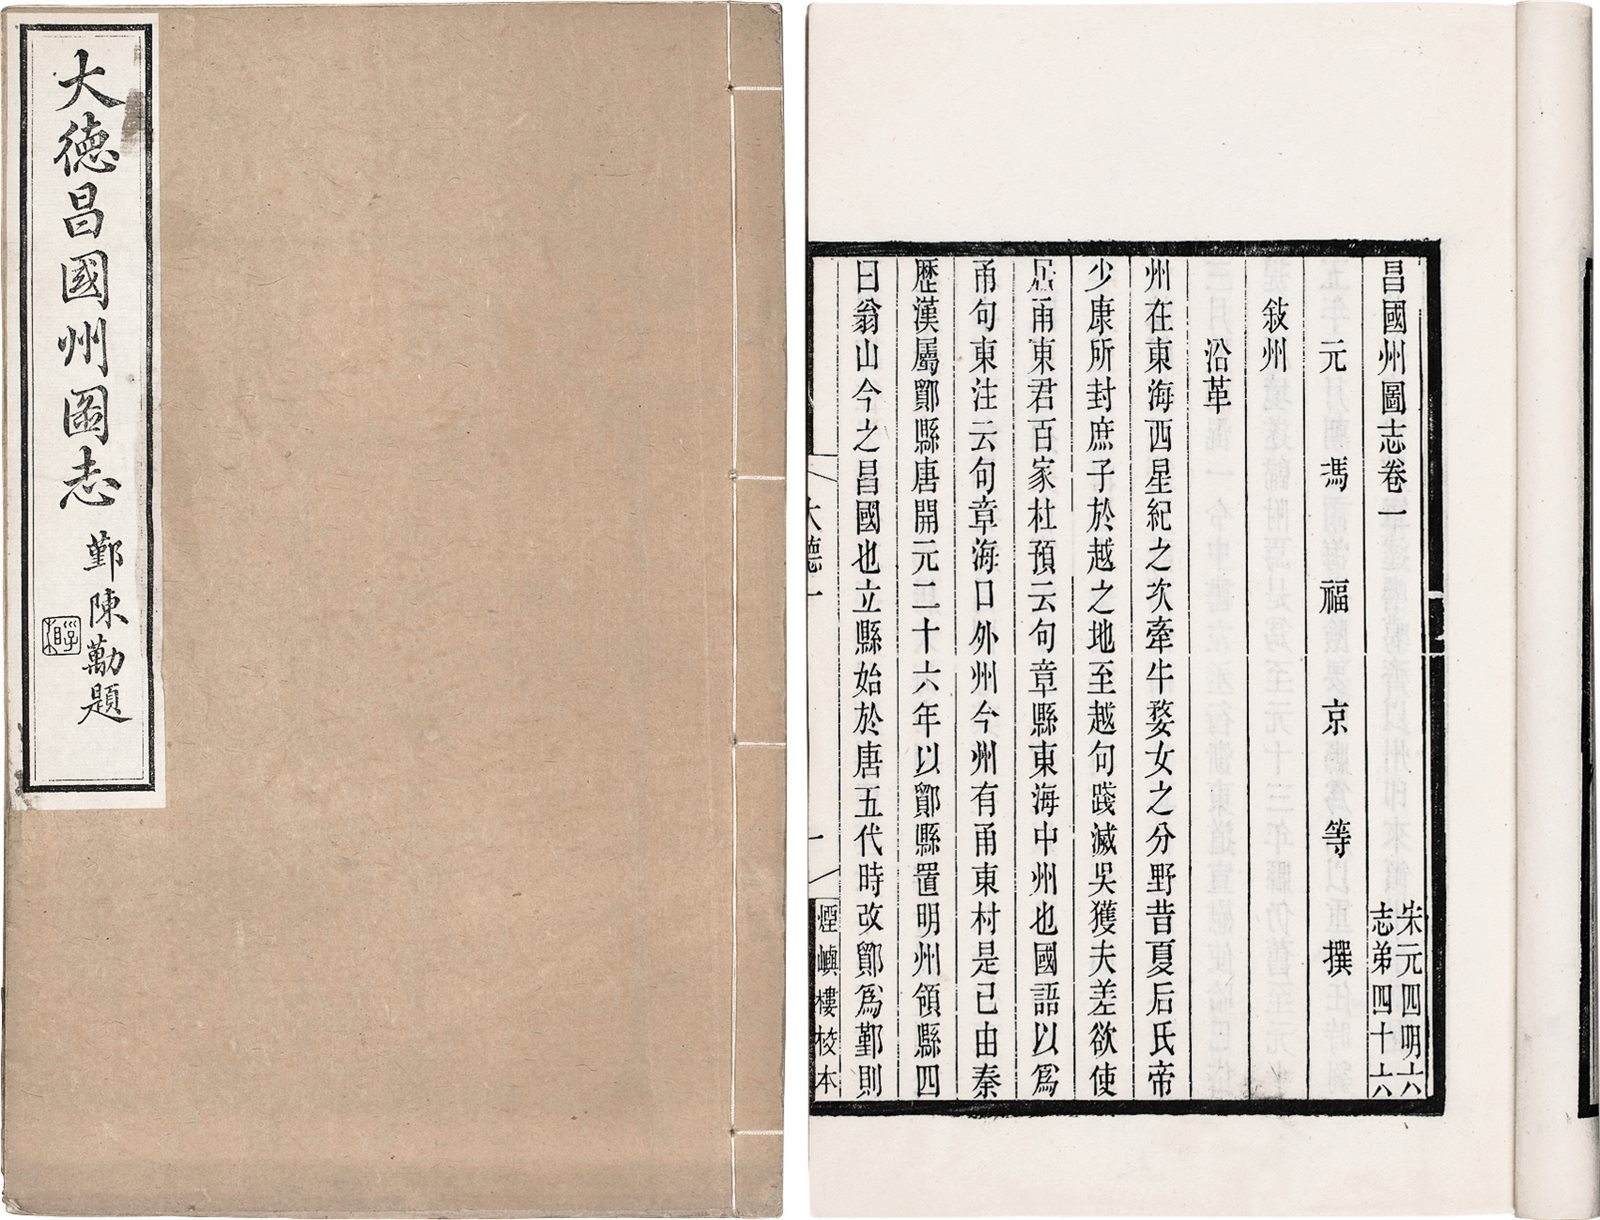 大德昌國州圖志
鄞陳勱題
昌國州圖志卷一
宋元四明六
志弟四十六
元馮福京等撰
敍州
沿革
州在東海西星紀之次牽牛婺女之分野昔夏后氏帝
少康所封庶子於越之地至越句踐滅吳獲夫差欲使
居甬東君百家杜預云句章縣東海中州也國語以爲
甬句東注云句章海口外州今州有甬東村是已由秦
歷漢屬鄮縣唐開元二十六年以鄮縣置明州領縣四
曰翁山今之昌國也立縣始於唐五代時改鄮爲鄞則
大德一
一
煙嶼樓校本